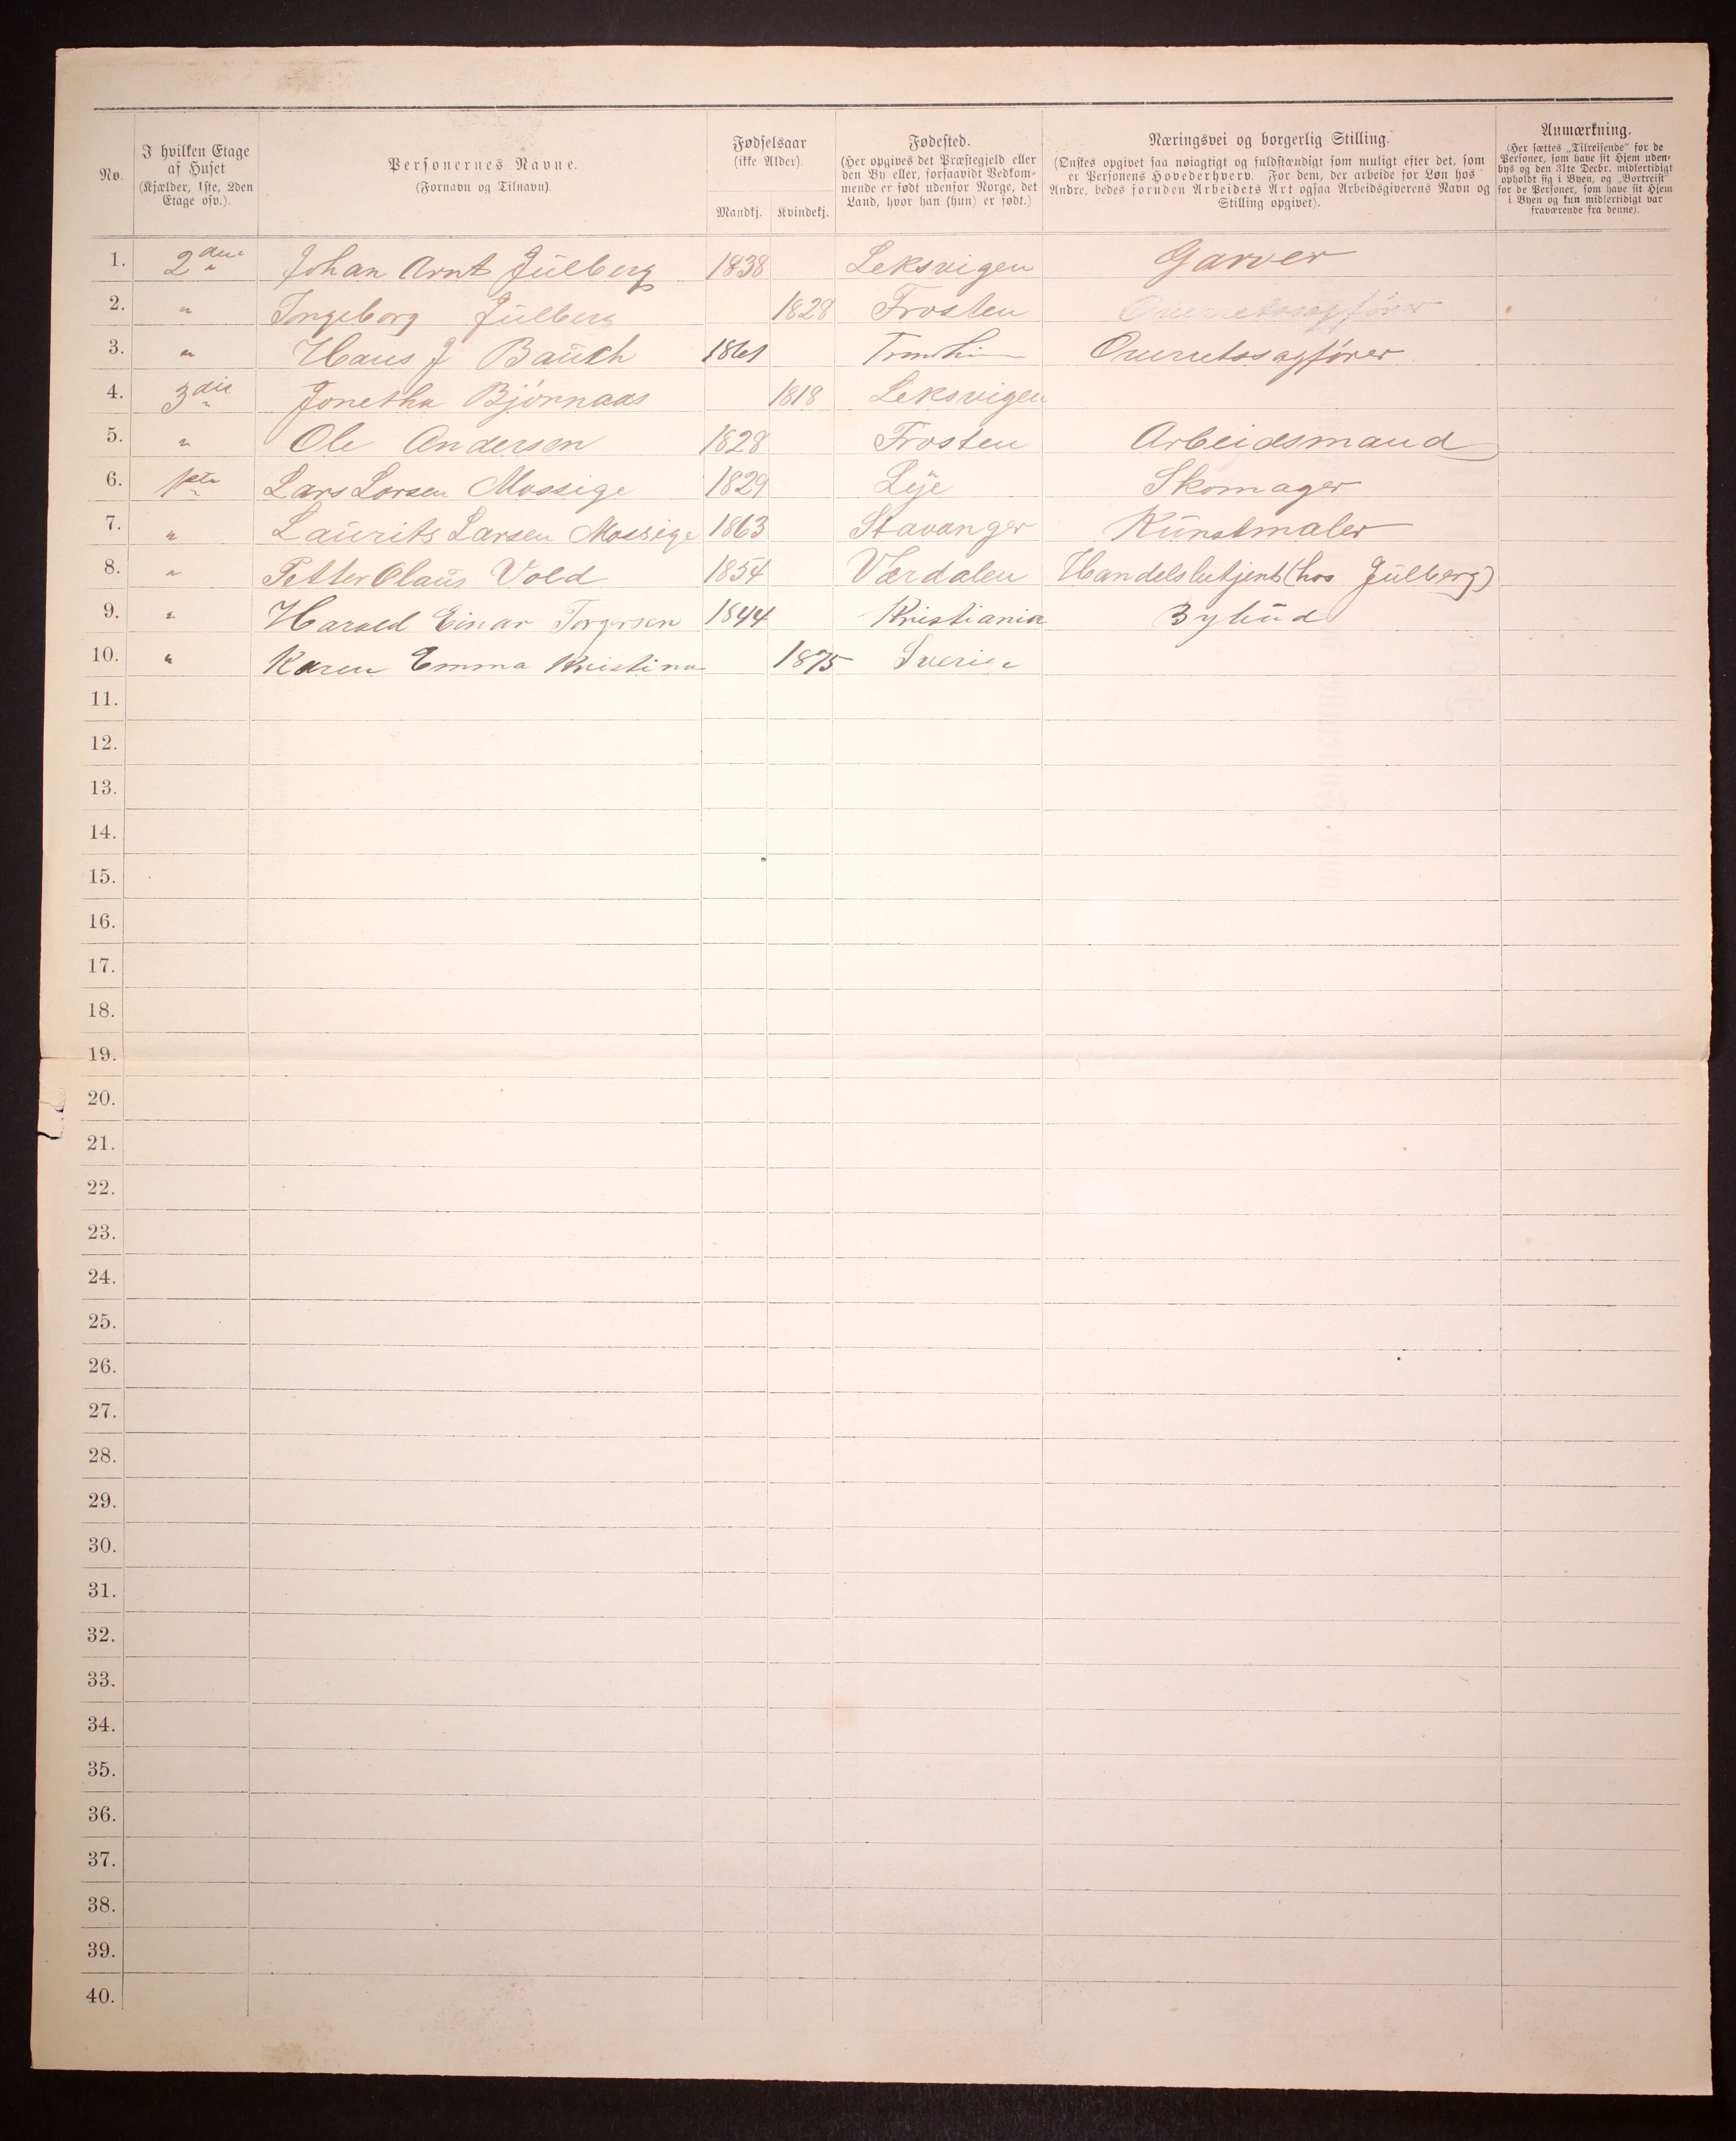 No.
I hvilken Etage af Huset (Kjælder, 1ste, 2den Etage osv.).
Personernes Navne. (Fornavn og Tilnavn).
Fødselsaar (ikke Alder). Mandkj. Kvindekj.
Fødested. (Her opgives det Præstegjeld eller den By eller, forsaavidt Vedkommende er født udenfor Norge, det Land, hvor han (hun) er født.)
Næringsvei og borgerlig Stilling. (Ønskes opgivet saa nøiagtigt og fuldstændigt som muligt efter det, som er Personens Hovederhverv. For dem, der arbeide for Løn hos Andre, bedes foruden Arbeidets Art ogsaa Arbeidsgiverens Navn og Stilling opgivet).
Anmærkning. (Her sættes „Tilreisende" for de Personer, som have sit Hjem udenbys og den 31te Decbr. midlertidigt opholdt sig i Byen, og „Bortreist" for de Personer, som have sit Hjem i Byen og kun midlertidigt var fraværende fra denne).
1. 2den Johan Arnt Julberg 1838 Leksvigen Garver
2. " Ingeborg Julberg 1828 Frosten Overretssagfører
3. " Hans J Bauck 1861 Trondhjem Overretssagfører
4. 3die Jonetha Bjørnaas 1818 Leksvigen
5. " Ole Andersen 1828 Frosten Arbeidsmand
6. 1ste Lars Larsen Mossige 1829 Lye Skomager
7. " Laurits Larsen Mossige 1863 Stavanger Kunstmaler
8. " Petter Olaus Vold 1854 Værdalen Handelsbetjent (hos Julberg)
9. " Harald Einar Torgersen 1844 Kristiania Bybud
10. " Karen Emma Kristina 1875 Sverige
11.
12.
13.
14.
15.
16.
17.
18.
19.
20.
21.
22.
23.
24.
25.
26.
27.
28.
29.
30.
31.
32.
33.
34.
35.
36.
37.
38.
39.
40.